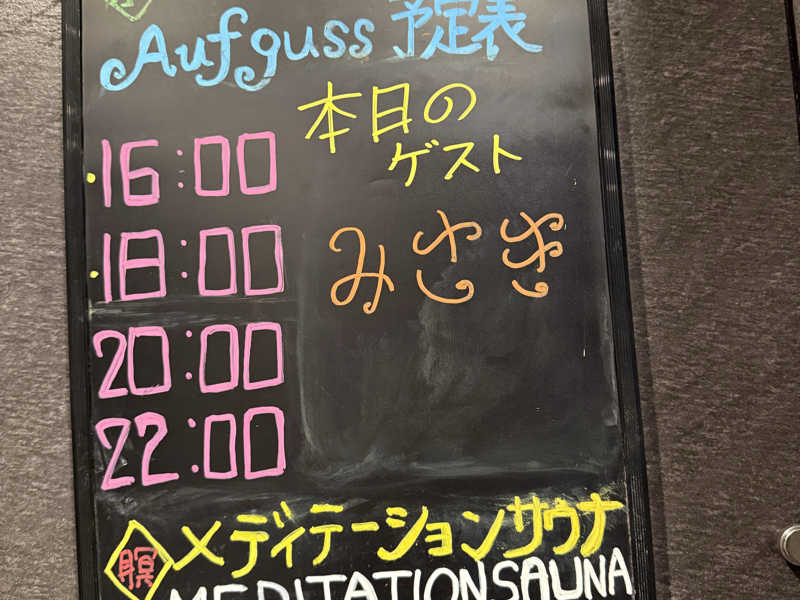 Aufguss 予定表
本日の
ゲスト
16:00
18:00
みさき
20:00
22:00
瞑 メディテーションサウナ
MEDITATION SAUNA